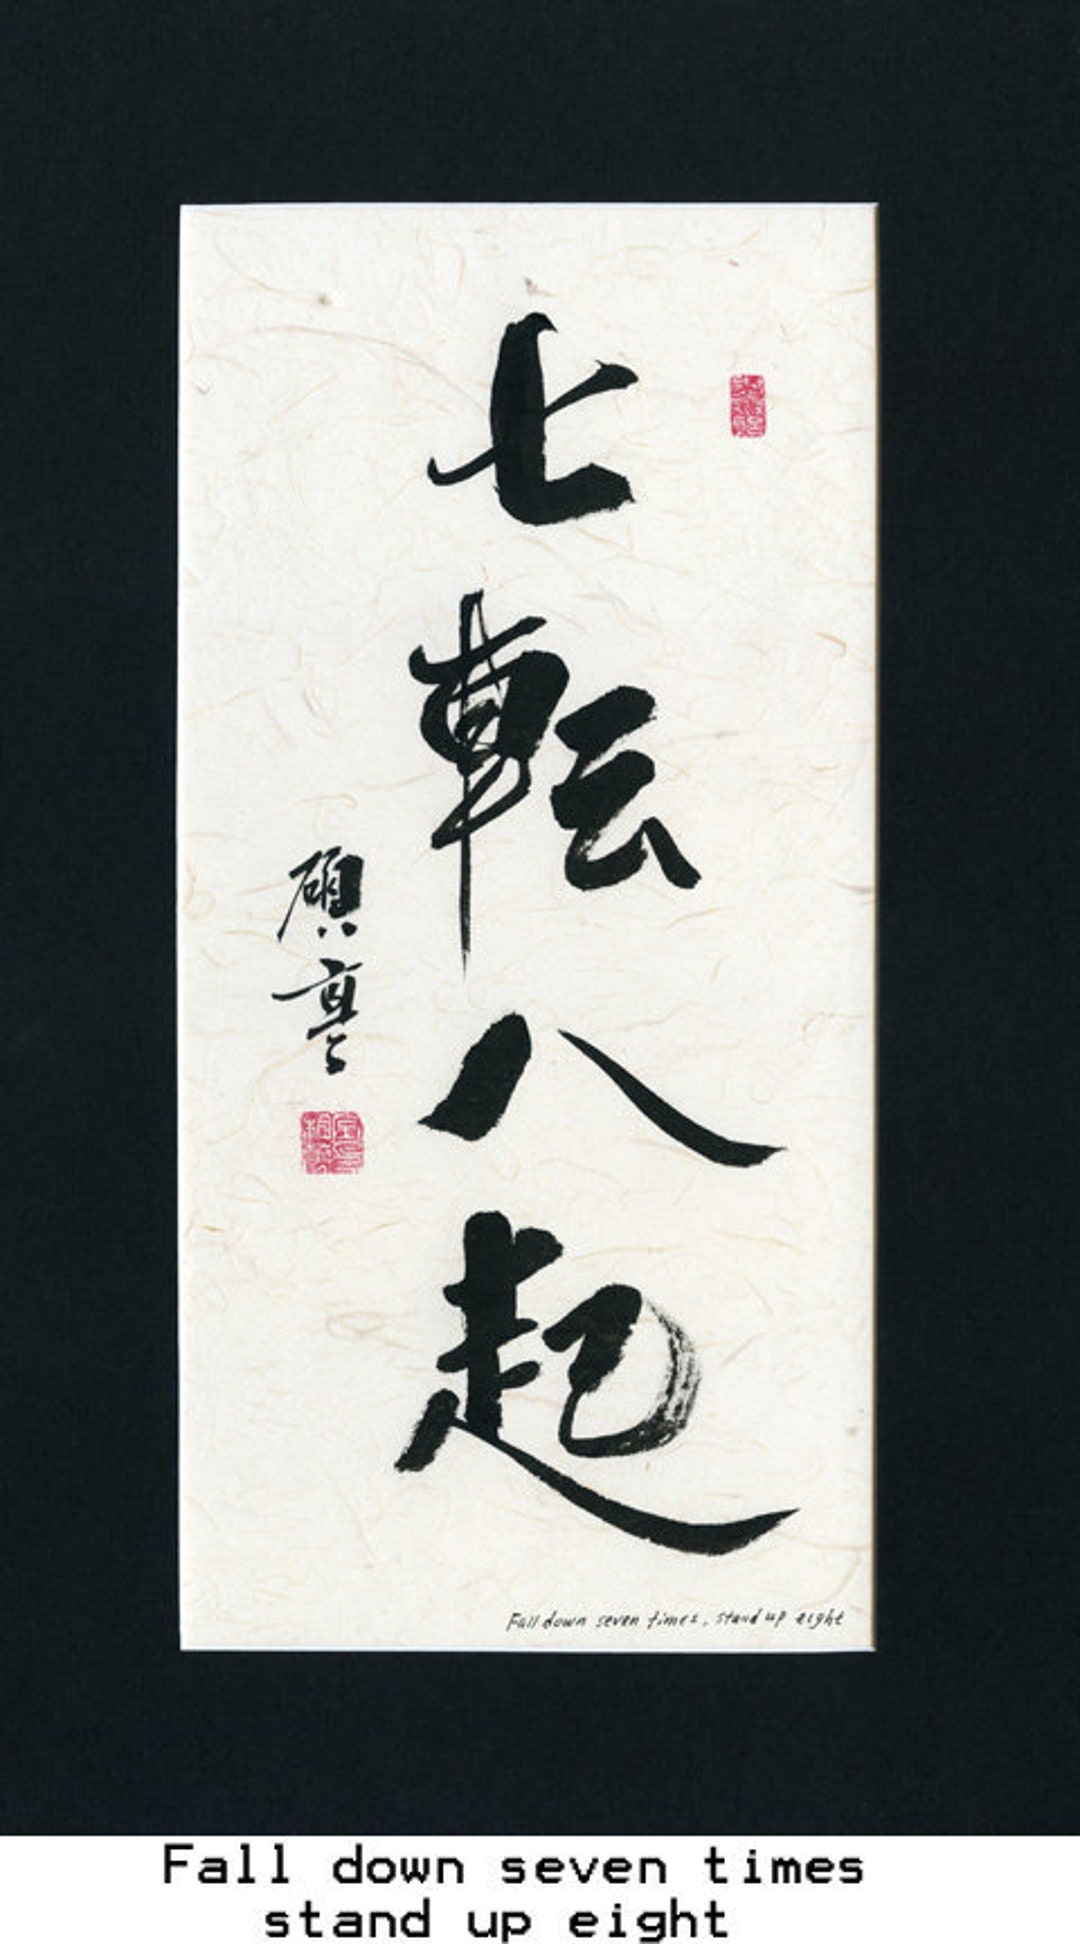 七転八起
碩亭
Fall down seven times, stand up eight
Fall down seven times
stand up eight